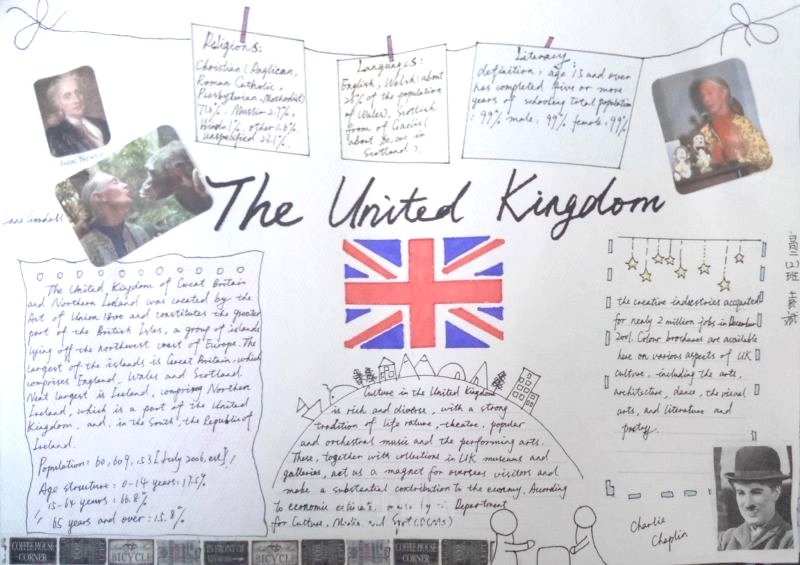 Religions:
Christian (Anglican,
Roman Catholic,
Presbyterian, Methodist)
71.6%, Muslim 2.7%,
Hindu 1%, other 1.6%.
unspecified 23.1%.
Languages:
English, Welsh (about
26% of the population
of Wales), Scottish
from of Gaelic (
about 60,000 in
Scotland).
Literacy:
definition: age 15 and over
has completed five or more
years of schooling total population
: 99% male: 99% female: 99%
Isaac Newton
The United Kingdom
The United Kingdom of Great Britain
and Northern Ireland was created by the
Act of Union 1800 and constitutes the greater
part of the British Isles, a group of islands
lying off the northwest coast of Europe. The
largest of the islands is Great Britain, which
comprises England, Wales and Scotland.
Next largest is Ireland, comprising Northern
Ireland, which is a part of the United
Kingdom, and, in the South, the Republic of
Ireland.
Population: 60,609,153 [July 2006, est]
Age structure: 0-14 years: 17.5%
15-64 years: 66.8%
65 years and over: 15.8%
Culture in the United Kingdom
is rich and diverse, with a strong
tradition of life rature, theatre, popular
and orchestral music and the performing arts.
These, together with collections in UK museums and
galleries, act as a magnet for overseas visitors and
make a substantial contribution to the economy. According
to economic estimate, made by the Department
for Culture, Media and Sport (DCMS)
the creative industries accounted
for nearly 2 million jobs in December
2001. Colour brochures are available
here on various aspects of UK
culture, including the arts,
architecture, dance, the visual
arts, and literature and
poetry.
高二(2)班
Charlie
Chaplin
COFFEE HOUSE
CORNER
BICYCLE
COFFEE HOUSE
CORNER
BICYCLE